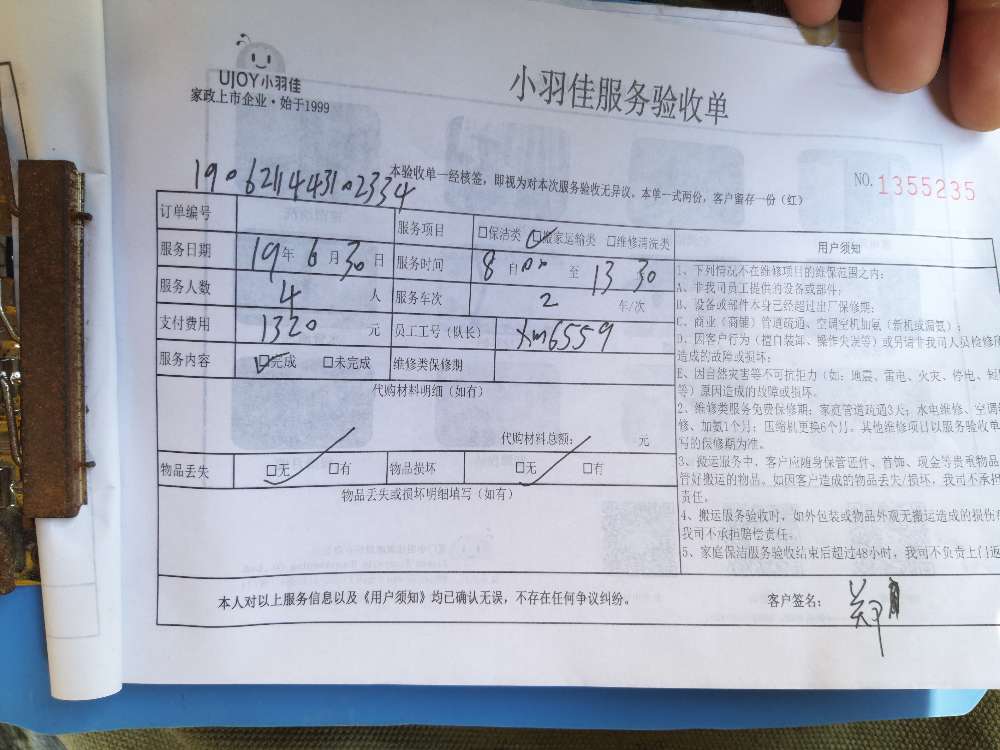 UJOY小羽佳
家政上市企业·始于1999
小羽佳服务验收单
1906211443102334
本验收单一经核签，即视为对本次服务验收无异议，本单一式两份，客户留存一份（红）
NO.1355235
订单编号 服务项目 □保洁类 □搬家运输类 □维修清洗类
服务日期 19年 6月30日 服务时间 8自00至13 30
服务人数 4 人 服务车次 2 车/次
支付费用 1320 元 员工工号（队长） Xm6559
服务内容 □完成 □未完成 维修类保修期
代购材料明细（如有）
代购材料总额： 元
物品丢失 □无 □有 物品损坏 □无 □有
物品丢失或损坏明细填写（如有）
用户须知
1、下列情况不在维修项目的维保范围之内：
A、非我司员工提供的设备或部件；
B、设备或部件本身已经超过出厂保修期；
C、商业（商铺）管道疏通、空调室机加氨（新机或漏氨）；
D、因客户行为（擅自装卸、操作失误等）或另请非我司人员检修所
造成的故障或损坏；
E、因自然灾害等不可抗拒力（如：地震、雷电、火灾、停电、短路
等）原因造成的故障或损坏。
2、维修类服务免费保修期：家庭管道疏通3天；水电维修、空调
修、加氨1个月；压缩机更换6个月。其他维修项目以服务验收单
写的保修期为准。
3、搬运服务中，客户应随身保管证件、首饰、现金等贵重物品
管好搬运的物品。如因客户造成的物品丢失/损坏，我司不承担
责任。
4、搬运服务验收时，如外包装或物品外观无搬运造成的损伤
我司不承担赔偿责任。
5、家庭保洁服务验收结束后超过48小时，我司不负责上门返
本人对以上服务信息以及《用户须知》均已确认无误，不存在任何争议纠纷。
客户签名：